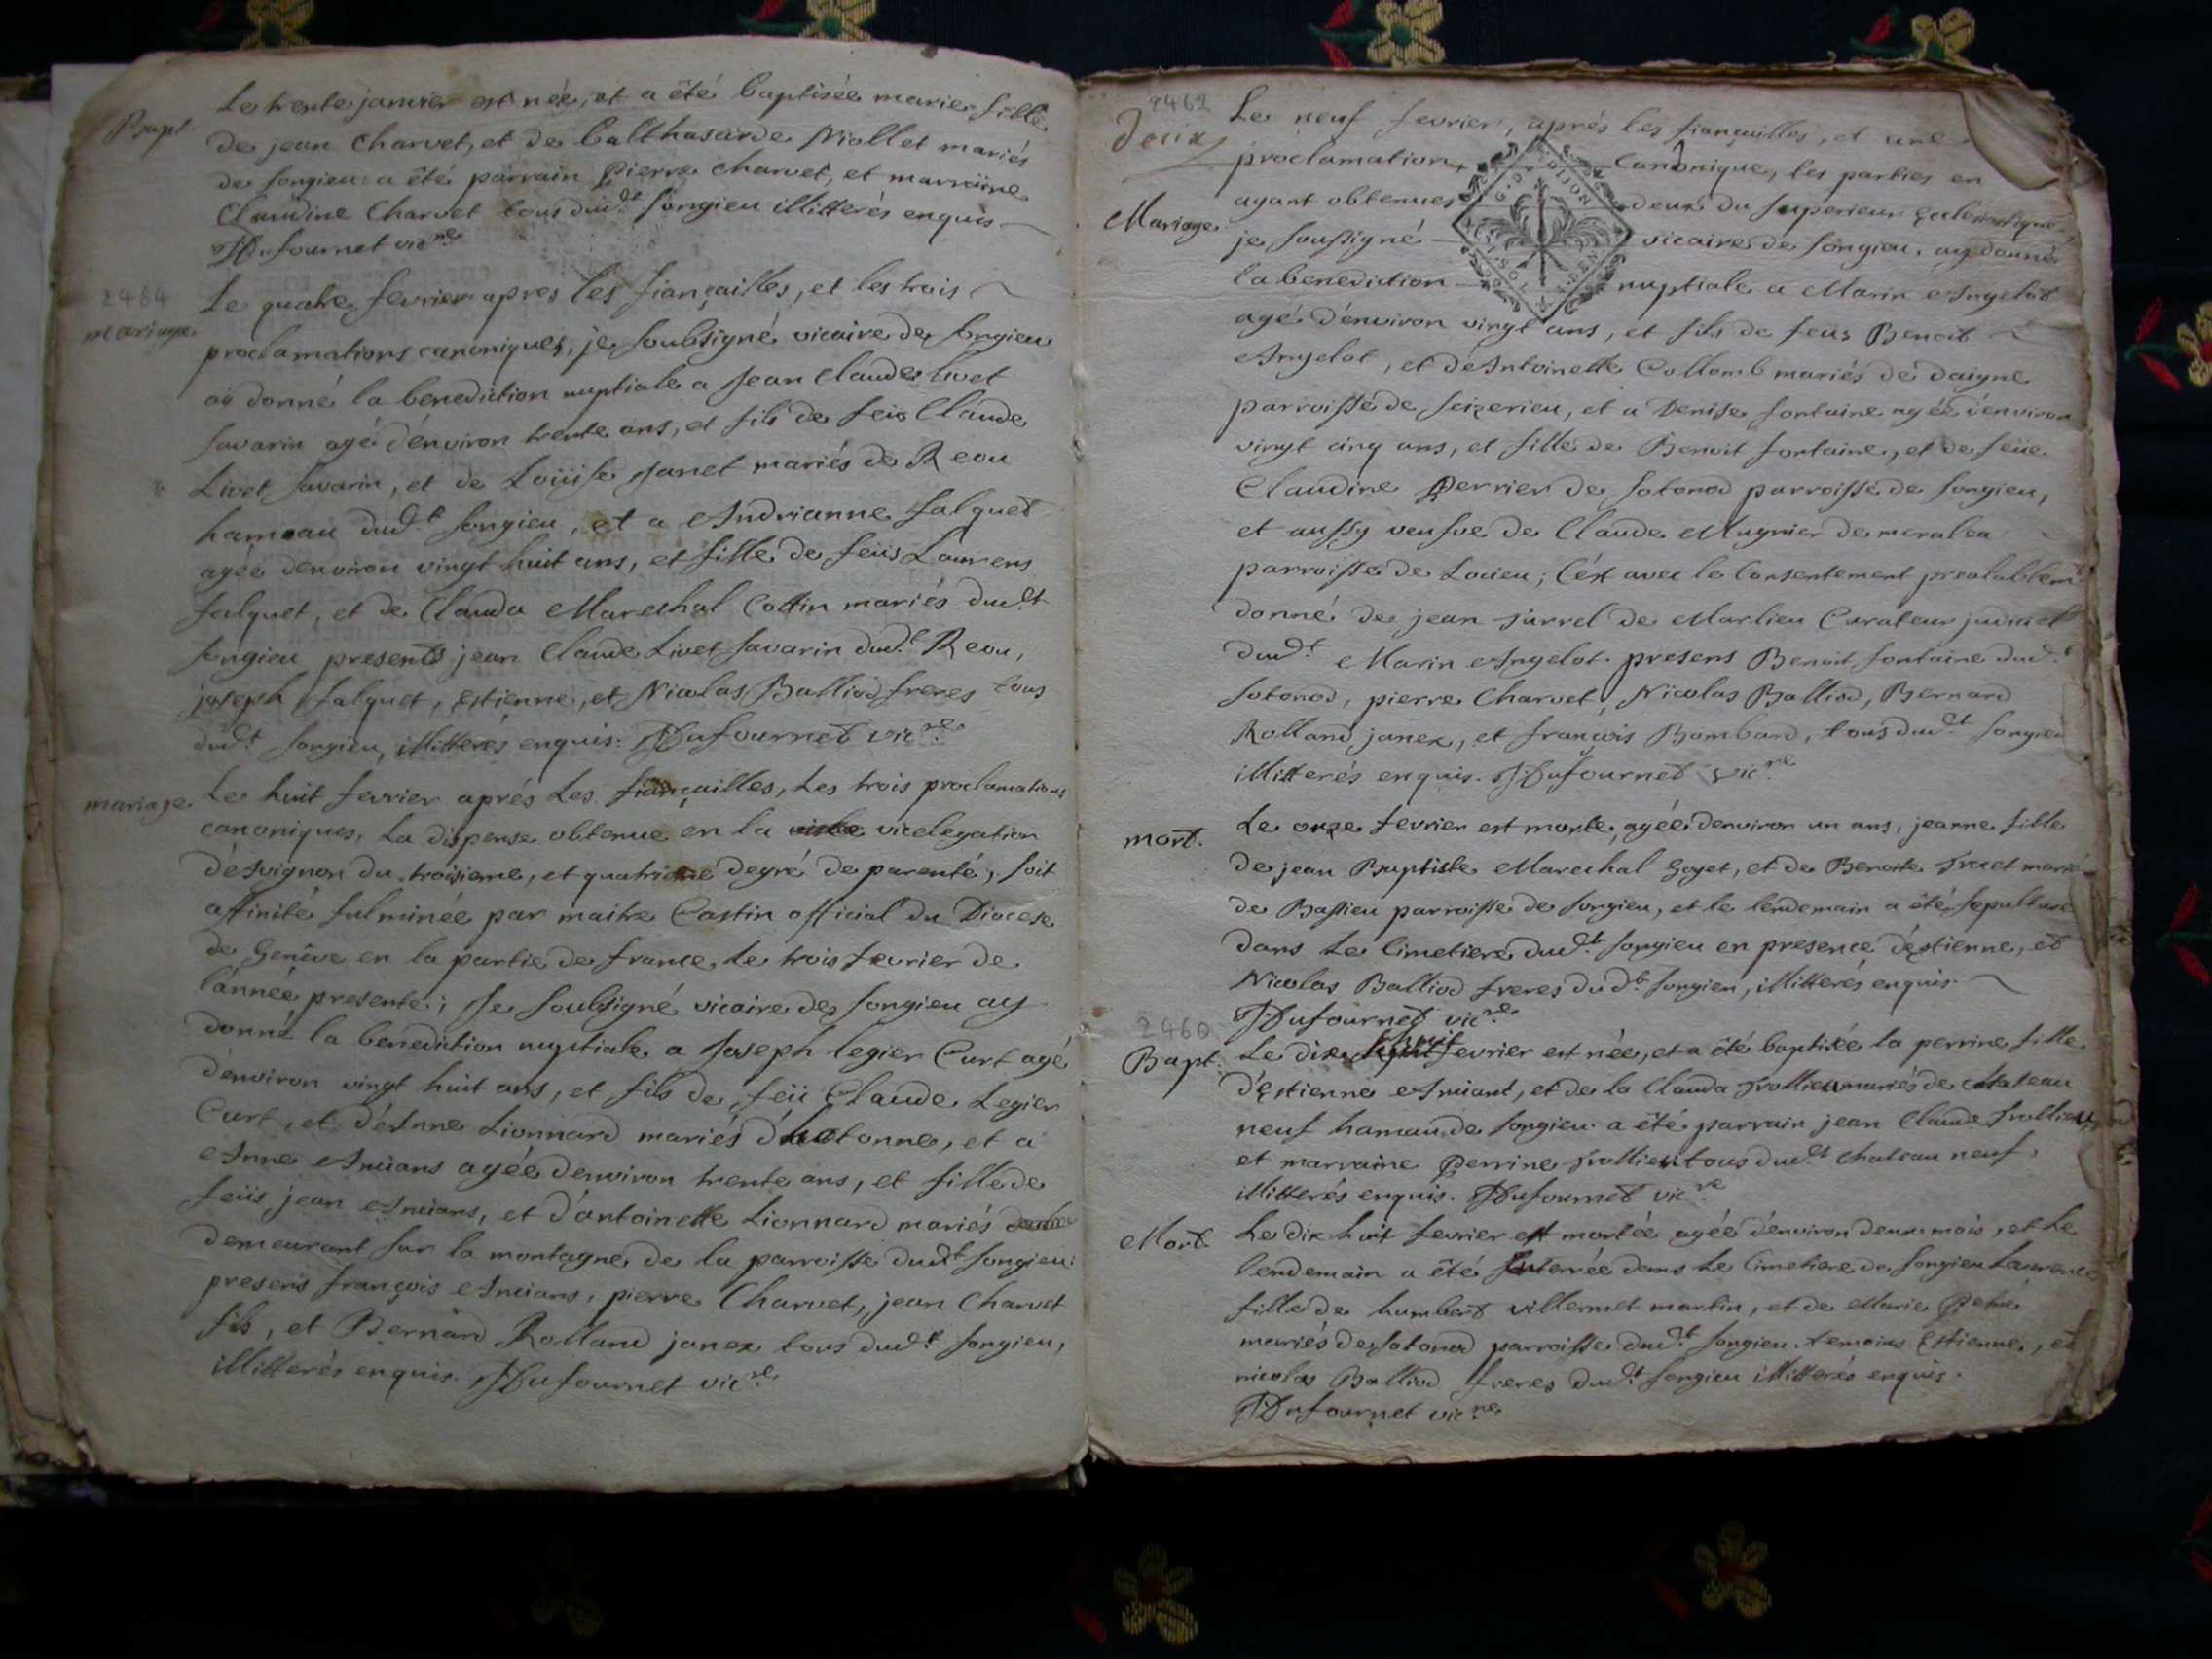 Bapt. Le trente janvier est née, et a été baptisée marie fille
de jean Charvet, et de balthasarde Niollet mariés
de songieu: a été parrain Pierre charvet, et marraine
Claudine Charvet tous dud.t songieu illitterés enquis
Dufournet vic.re
2464
mariage Le quatre fevrier apres les fiançailles, et les trois
proclamations canoniques, je soubsigné vicaire de songieu
aÿ donné la benediction nuptiale a Jean Claude livet
savarin agé d'environ trente ans, et fils de feüs Claude
Livet savarin, et de Loüise Janet mariés de Reou
hameau dud.t songieu, et a Andrianne falquet
agée denviron vingt huit ans, et fille de feüs Laurens
falquet, et de Clauda Mareschal Cottin mariés dud.t
songieu presents jean Claude Livet savarin dud.t Reou,
joseph falquet, Estienne, et Nicolas Balliod freres tous
dud.t songieu, illitterés enquis: Dufournet vic.re
mariage Le huit fevrier aprés Les fiançailles, Les trois proclamations
canoniques, La dispense obtenue en la vicelegation
d'Avignon du troisieme, et quatrieme degré de parenté, soit
affinité fulminée par maitre Castin official du Diocese
de Genêve en la partie de france, le trois fevrier de
l'année presente; Je soubsigné vicaire de songieu ay
donné la benediction nuptiale a Joseph legier Curt agé
d'environ vingt huit ans, et fils de feü Claude Legier
Curt, et d'Anne Lionnard mariés d'hotonne, et a
Anne Aniians agée denviron trente ans, et fille de
feüs jean Aniians, et d'antoinette Lionnard mariés
demeurant sur la montagne de la parroisse dud.t songieu:
presens françois Aniians, pierre Charvet, jean Charvet
fils, et Bernard Rolland janex tous dud.t songieu,
illitterés enquis. Dufournet vic.re
2462
Deux
Le neuf fevrier, aprés les fiançailles, et une
proclamation canonique, les parties en
ayant obtenues deux du superieur
Mariage je soussigné vicaire de songieu, ay donné
la benediction nuptiale a Marin Angelot
agé d'environ vingt ans, et fils de feüs Benoit
Angelot, et d'Antoinette Collomb mariés de daigne
parroisse de seizerieu, et a Denise fontaine agée d'environ
vingt cinq ans, et fille de Benoit fontaine, et de feüe
Claudine Perrier de sotonod parroisse de songieu,
et aussy veufve de Claude Mugnier de meralea
parroisse de Locieu; C'ést avec le Consentement prealablem.t
donné de jean surrel de Marlieu Curateur judiciel
dud.t Marin Angelot. presens Benoit fontaine dud.t
sotonod, pierre Charvet, Nicolas Balliod, Bernard
Rolland janex, et françois Bombard, tous dud.t songieu
illitterés enquis. Dufournet vic.re
mort. Le onze fevrier est morte, agée denviron un ans, jeanne fille
de jean Baptiste Mareschal Goyet, et de Benoite mariés
de Bassieu parroisse de songieu, et le lendemain a été sepulturée
dans Le Cimetiere dud.t songieu en presence d'Estienne, et
Nicolas Balliod freres dud.t songieu, illitterés enquis.
Dufournet vic.re
2460
Bapt. Le dix huit fevrier est née, et a été baptisée la perrine fille
d'Estienne Aniant, et de la Clauda trollieu mariés de Chateau
neuf hamau de songieu. a été parrain jean Claude trollieu,
et marraine Perrine trollieu tous dud.t chateau neuf,
illitterés enquis. Dufournet vic.re
Mort. Le dix huit fevrier est mortée agée d'environ deux mois, et Le
lendemain a été enterrée dans Le Cimetiere de songieu Laurence
fille de humbert villermet martin, et de Marie
mariés de sotonod parroisse dud.t songieu. temoins Estienne, et
nicolas Balliod freres dud.t songieu illitterés enquis.
Dufournet vic.re
G. DE DIJON